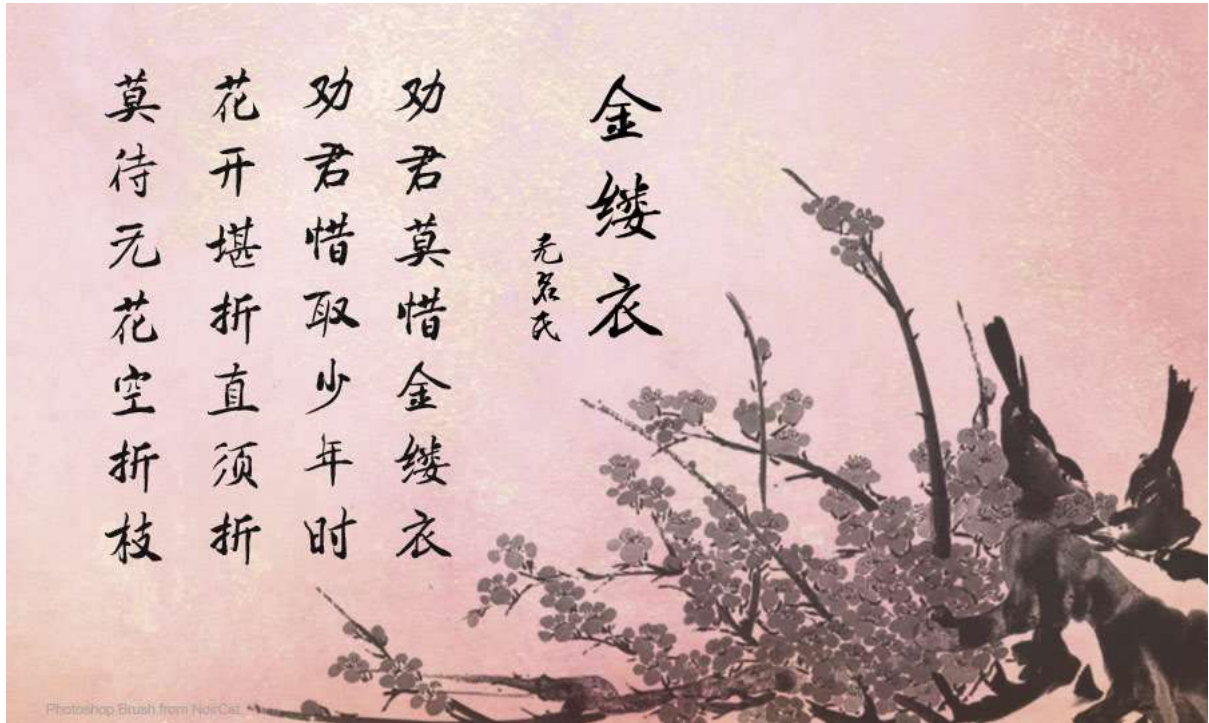 金缕衣
无名氏
劝君莫惜金缕衣
劝君惜取少年时
花开堪折直须折
莫待无花空折枝
Photoshop Brush from NoirCat